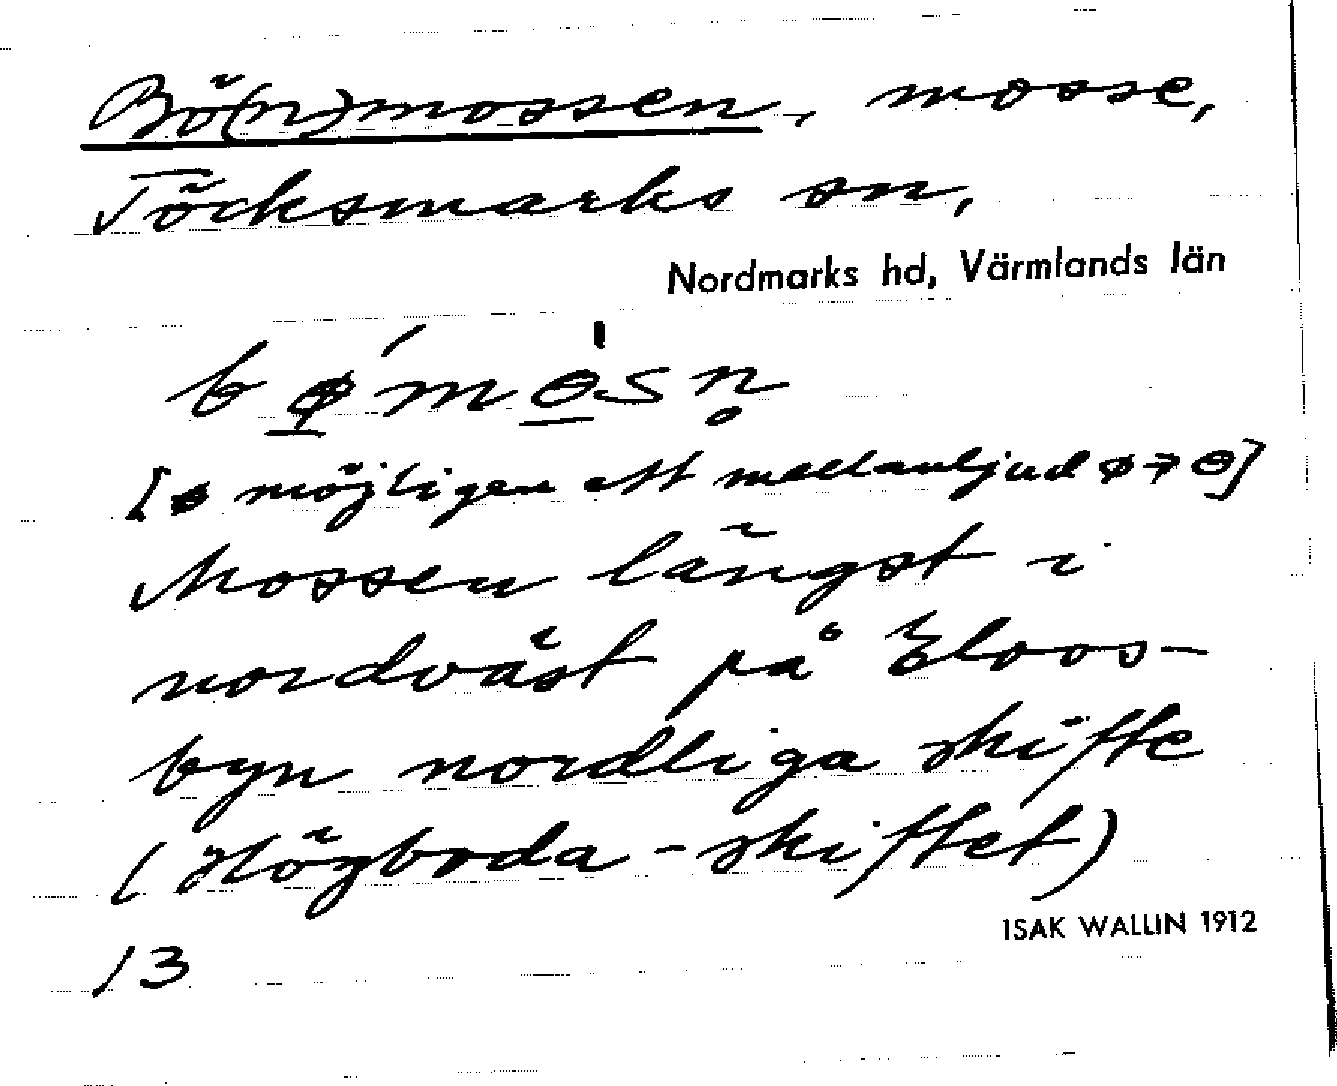 Bö(n)mossen, mosse,
Töcksmarks sn,
Nordmarks hd, Värmlands län
bǿ̱mɵ̱̍sn̥
[ø möjligen ett mellanljud ø → ɵ]
Mossen längst i
nordväst på Elovs-
byn nordliga skifte
(Högboda-skiftet)
ISAK WALLIN 1912
13